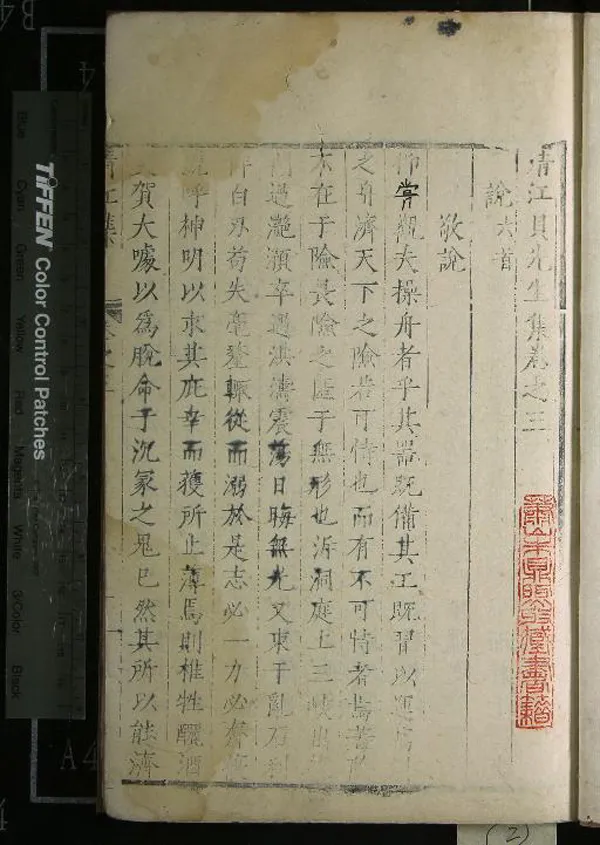 清江貝先生集卷之三
說六首
敬說
嘗觀夫操舟者乎其器既備其工既習以運
之舟濟天下之險若可恃也而有不可恃者焉
不在于險畏險之匿于無形也泝洞庭上三峽
過灔澦卒遇洪濤震蕩日晦無光又束于亂石
自刃苟失毫釐輒從而溺於是志必一力必齊
呼神明以求其庇幸而獲所止薄焉則椎牲釃酒
賀大噱以爲脫命于沉冢之鬼已然其所以能濟
清江集
卷之三
蕭山王鼎
書籍
TIFFEN Color Control Patches
Blue
Cyan
Green
Yellow
Red
Magenta
White
3/Color
Black
B4
A4
A4
(2)